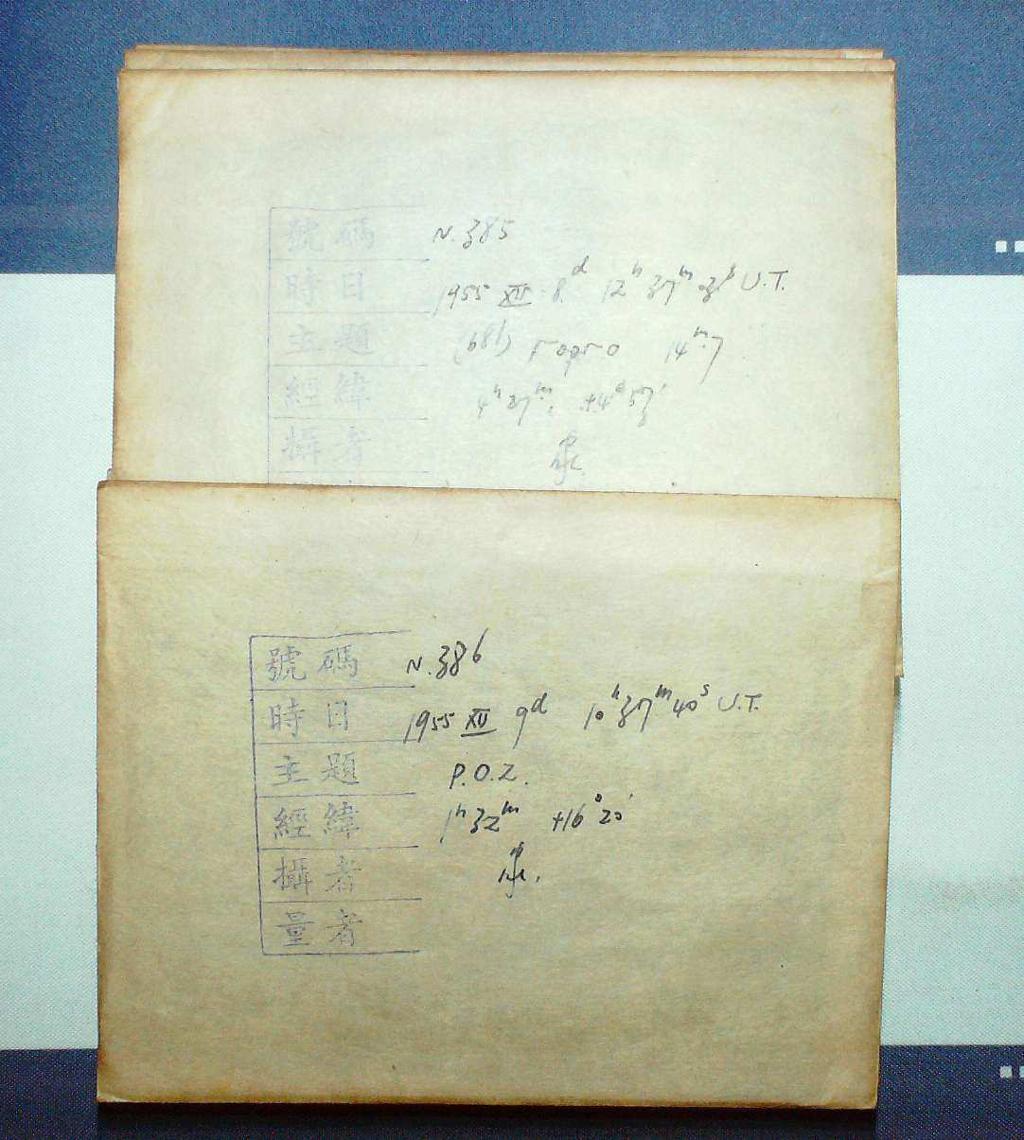 號碼 N. 385
時日 1955 XII 8.d 12h 37m U.T.
主題 (681) 14m.7
經緯 4h 27m. +4° 57'
攝者
號碼 N. 386
時日 1955 XII 9d 10h 37m 40s U.T.
主題 P.O.Z.
經緯 1h 32m +16° 20'
攝者
量者